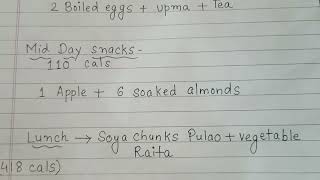 2 Boiled eggs + upma + Tea
Mid Day snacks -
110 cals
1 Apple + 6 soaked almonds
Lunch → Soya chunks Pulao + vegetable
Raita
418 cals)